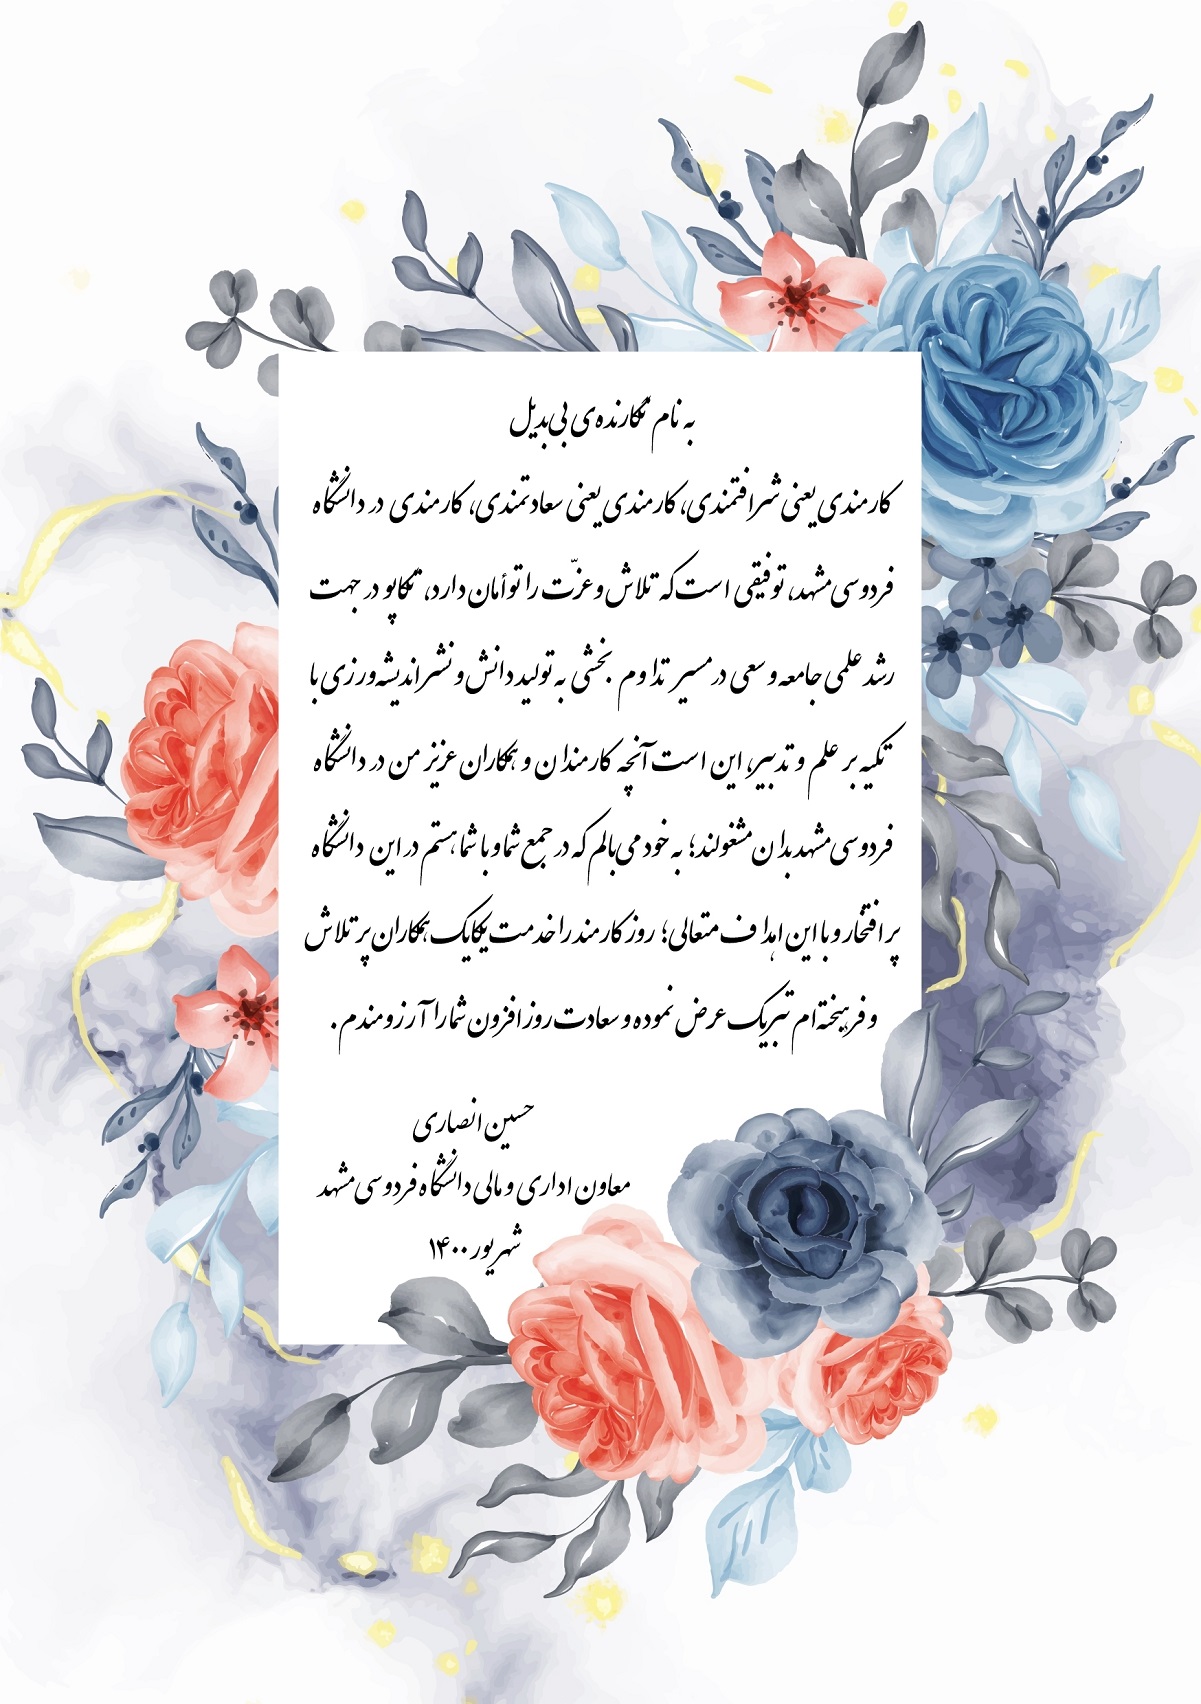 به نام نگارنده‌ی بی‌بدیل
کارمندی یعنی شرافتمندی، کارمندی یعنی سعادتمندی، کارمندی در دانشگاه
فردوسی مشهد، توفیقی است که تلاش و عزّت را توأمان دارد، تکاپو در جهت
رشد علمی جامعه و سعی در مسیر تداوم بخشی به تولید دانش و نشر اندیشه‌ورزی با
تکیه بر علم و تدبیر، این است آنچه کارمندان و همکاران عزیز من در دانشگاه
فردوسی مشهد بدان مشغولند؛ به خود می‌بالم که در جمع شما و با شما هستم در این دانشگاه
پر افتخار و با این اهداف متعالی؛ روز کارمند را خدمت یکایک همکاران پر تلاش
و فرهیخته‌ام تبریک عرض نموده و سعادت روز افزون شما را آرزومندم.
حسین انصاری
معاون اداری و مالی دانشگاه فردوسی مشهد
شهریور ۱۴۰۰